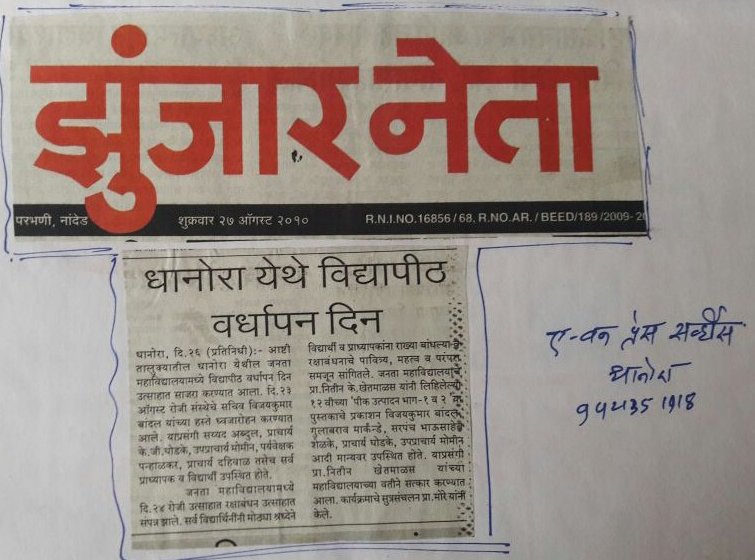 झुंजार नेता
परभणी, नांदेड शुक्रवार २७ ऑगस्ट २०१० R.N.I.NO.16856/68. R.NO.AR./BEED/189/2009-
धानोरा येथे विद्यापीठ
वर्धापन दिन
धानोरा, दि.२६ (प्रतिनिधी):- आष्टी
तालुक्यातील धानोरा येथील जनता
महाविद्यालयामध्ये विद्यापीठ वर्धापन दिन
उत्साहात साजरा करण्यात आला. दि.२३
ऑगस्ट रोजी संस्थेचे सचिव विजयकुमार
बांदल यांच्या हस्ते ध्वजारोहन करण्यात
आले. याप्रसंगी सय्यद अब्दुल, प्राचार्य
के.जी.घोडके, उपप्राचार्य मोमीन, पर्यवेक्षक
पन्हाळकर, प्राचार्य दहिवाळ तसेच सर्व
प्राध्यापक व विद्यार्थी उपस्थित होते.
जनता महाविद्यालयामध्ये
दि.२४ रोजी उत्साहात रक्षाबंधन उत्साहात
संपन्न झाले. सर्व विद्यार्थिनींनी मोठ्या श्रध्देने
विद्यार्थी व प्राध्यापकांना राख्या बांधल्या व
रक्षाबंधनाचे पावित्र्य, महत्व व परंपरा
समजून सांगितले. जनता महाविद्यालयाचे
प्रा.नितीन के.खेतमाळस यांनी लिहिलेल्या
१२ वीच्या 'पीक उत्पादन भाग-१ व २ ' या
पुस्तकाचे प्रकाशन विजयकुमार बांदल,
गुलाबराव मार्कन्डे, सरपंच भाऊसाहेब
शेळके, प्राचार्य घोडके, उपप्राचार्य मोमीन
आदी मान्यवर उपस्थित होते. याप्रसंगी
प्रा.नितीन खेतमाळस यांच्या
महाविद्यालयाच्या वतीने सत्कार करण्यात
आला. कार्यक्रमाचे सुत्रसंचलन प्रा.मोरे यांनी
केले.
ए-वन प्रेस सर्व्हीस
धानोरा